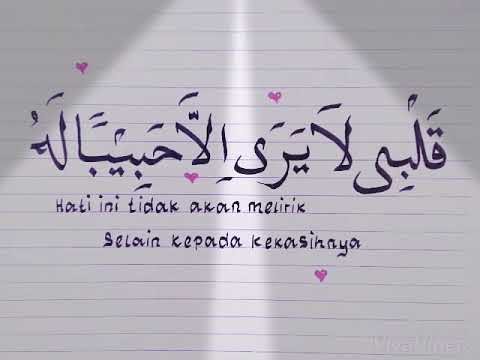 قَلْبِي لَا يَرَى اِلَّا حَبِيْبًا لَهُ
Hati ini tidak akan melirik
Selain kepada kekasihnya
VivaVideo